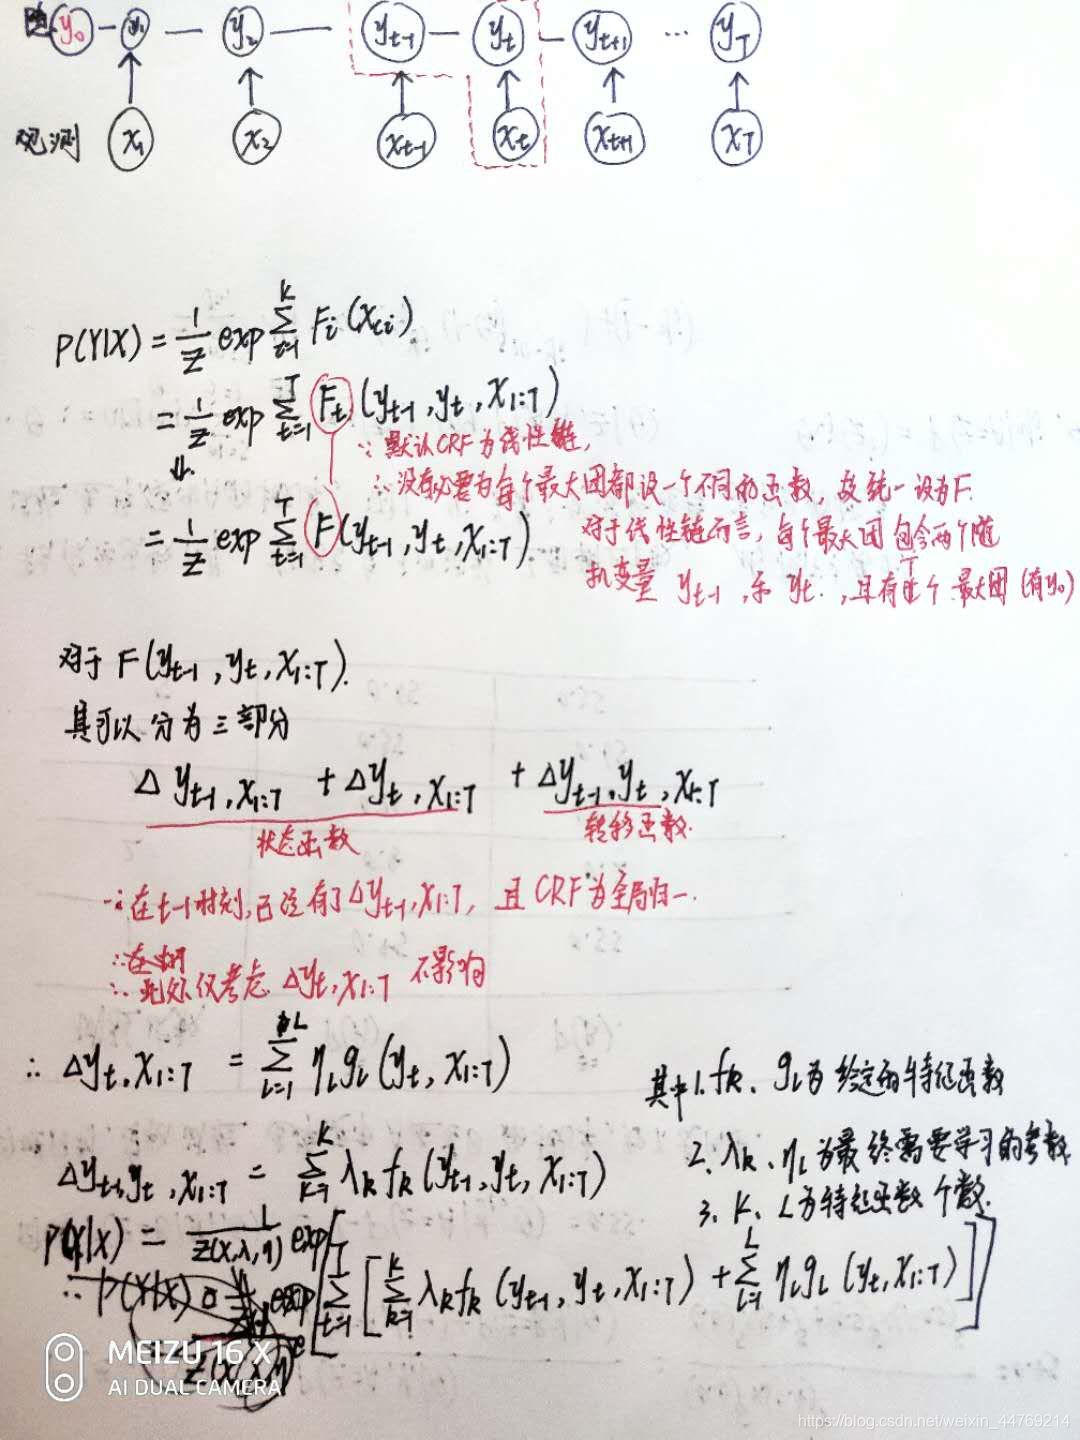 隐 y₀ — y₁ — y₂ — yₜ₋₁ — yₜ — yₜ₊₁ ··· y_T
观测 x₁ x₂ xₜ₋₁ xₜ xₜ₊₁ x_T
P(Y|X) = 1/Z exp ∑_{i=1}^{K} Fᵢ(x_{ci})
= 1/Z exp ∑_{t=1}^{T} Fₜ(yₜ₋₁, yₜ, x_{1:T})
∵ 默认CRF为线性链,
∴ 没有必要为每个最大团都设一个不同的函数, 故统一设为F.
= 1/Z exp ∑_{t=1}^{T} F(yₜ₋₁, yₜ, x_{1:T})
对于线性链而言, 每个最大团包含两个随
机变量 yₜ₋₁, 和 yₜ., 且有T个最大团 (有y₀)
对于 F(yₜ₋₁, yₜ, x_{1:T}).
其可以分为三部分
Δyₜ₋₁, x_{1:T} + Δyₜ, x_{1:T} + Δyₜ₋₁, yₜ, x_{1:T}
状态函数 转移函数.
∵ 在t-1时刻, 已经有了Δyₜ₋₁, x_{1:T}, 且CRF为全局归一.
∴ 此处仅考虑 Δyₜ, x_{1:T} 不影响
∴ Δyₜ, x_{1:T} = ∑_{l=1}^{L} η_l g_l(yₜ, x_{1:T})
其中 1. f_k、g_l为给定的特征函数
Δyₜ₋₁, yₜ, x_{1:T} = ∑_{k=1}^{K} λ_k f_k(yₜ₋₁, yₜ, x_{1:T})
2. λ_k、η_l为最终需要学习的参数
3. K、L为特征函数个数.
P(Y|X) = 1/Z(x,λ,η) exp[∑_{t=1}^{T}[∑_{k=1}^{K} λ_k f_k(yₜ₋₁, yₜ, x_{1:T}) + ∑_{l=1}^{L} η_l g_l(yₜ, x_{1:T})]]
MEIZU 16 X
AI DUAL CAMERA
https://blog.csdn.net/weixin_44769214